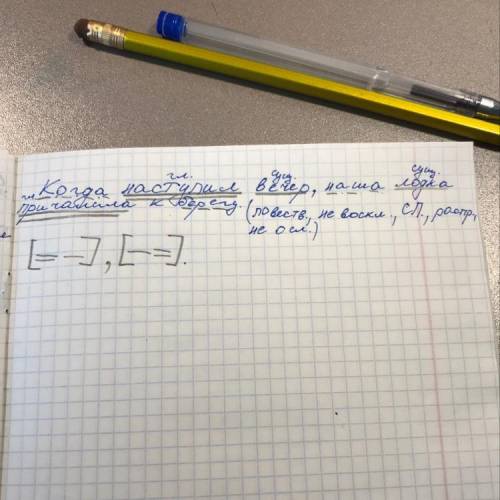 гл. сущ. сущ.
Когда наступил вечер, наша лодка
гл.
причалила к берегу. (повеств., не воскл., СП., распр.,
не осл.)
[= –], [– =].